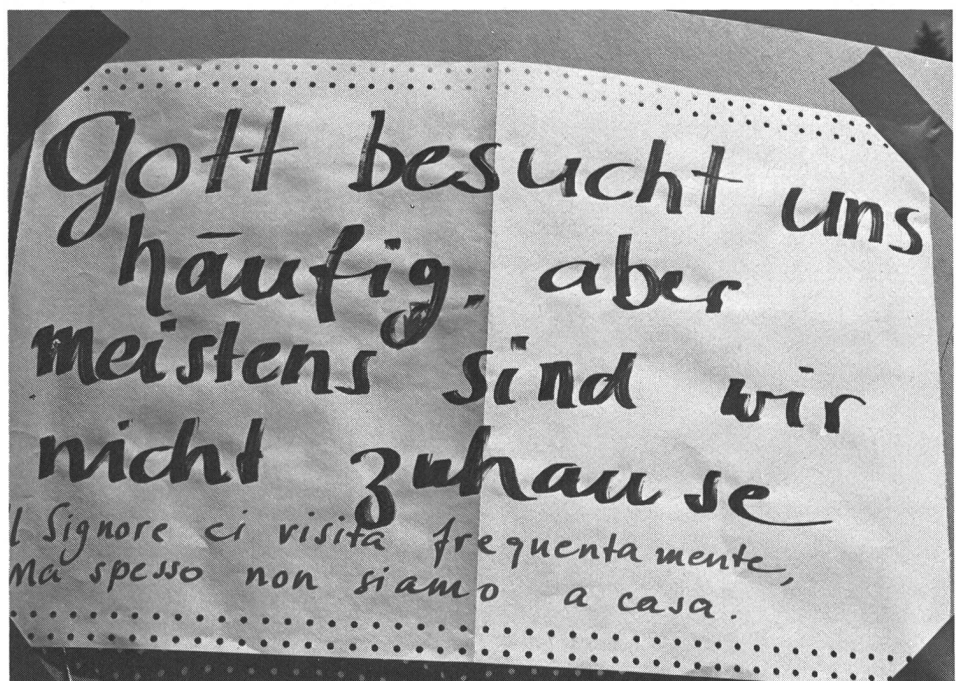 Gott besucht uns
häufig, aber
meistens sind wir
nicht zuhause
il Signore ci visita frequentamente,
Ma spesso non siamo a casa.